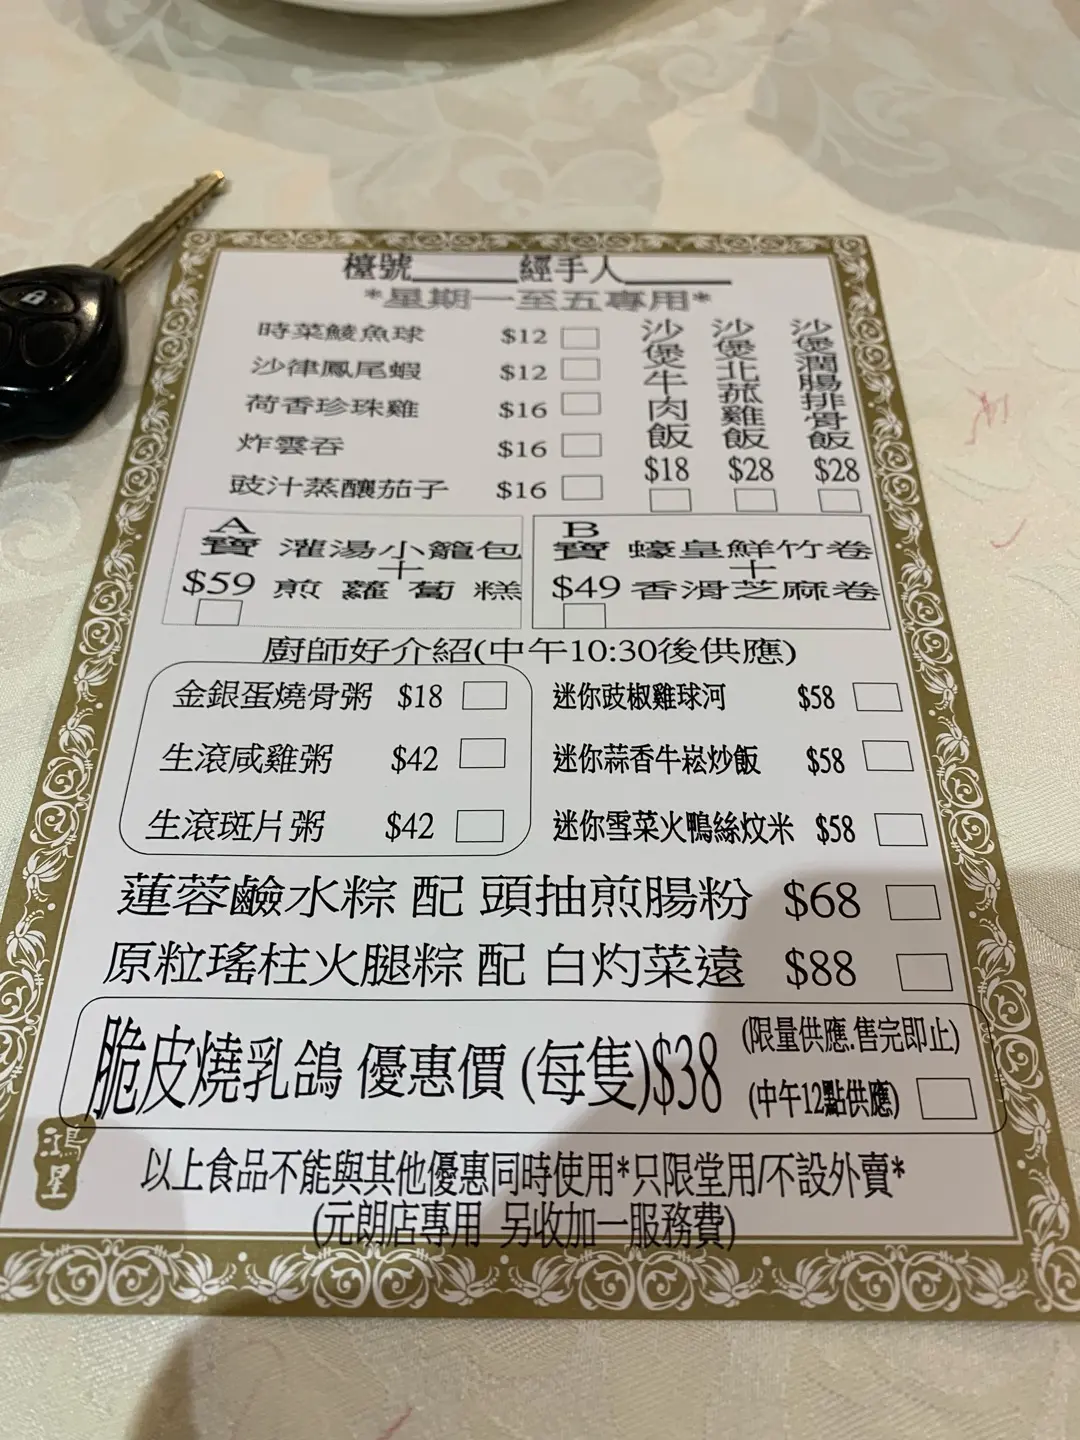 檯號______經手人______
*星期一至五專用*
時菜鯪魚球 $12
沙律鳳尾蝦 $12
荷香珍珠雞 $16
炸雲吞 $16
豉汁蒸釀茄子 $16
沙煲牛肉飯 $18
沙煲北菰雞飯 $28
沙煲潤腸排骨飯 $28
A
寶 灌湯小籠包
+
$59 煎蘿蔔糕
B
寶 蠔皇鮮竹卷
+
$49 香滑芝麻卷
廚師好介紹(中午10:30後供應)
金銀蛋燒骨粥 $18
生滾咸雞粥 $42
生滾斑片粥 $42
迷你豉椒雞球河 $58
迷你蒜香牛崧炒飯 $58
迷你雪菜火鴨絲炆米 $58
蓮蓉鹼水粽 配 頭抽煎腸粉 $68
原粒瑤柱火腿粽 配 白灼菜遠 $88
脆皮燒乳鴿 優惠價 (每隻)$38
(限量供應.售完即止)
(中午12點供應)
鴻星
以上食品不能與其他優惠同時使用*只限堂用/不設外賣*
(元朗店專用 另收加一服務費)